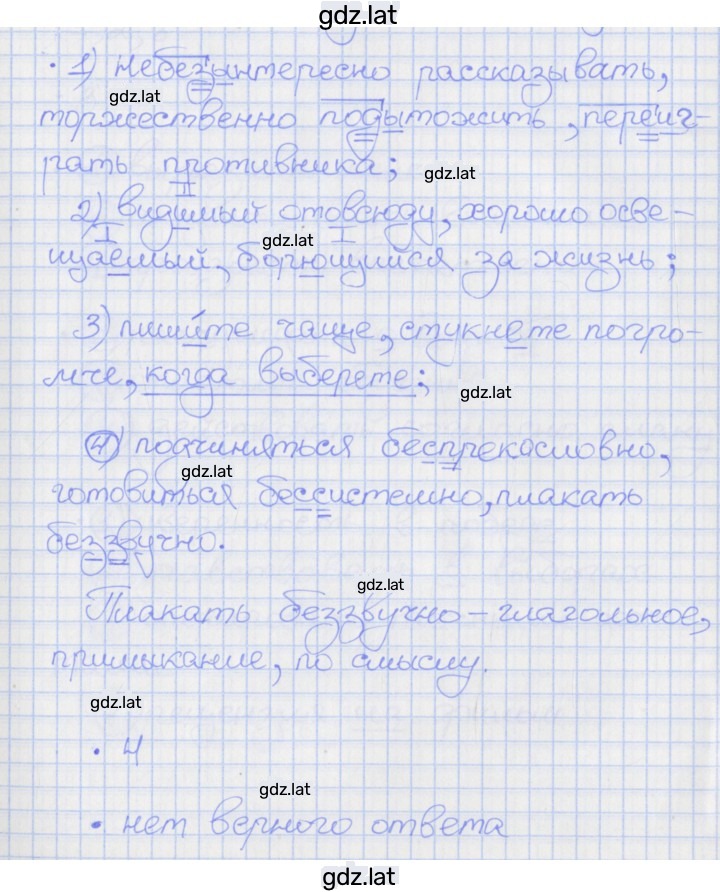 gdz.lat
• 1) небезынтересно рассказывать,
gdz.lat
торжественно подытожить, переиг-
рать противника;
gdz.lat
2) видимый отовсюду, хорошо осве-
gdz.lat
щаемый, борющийся за жизнь;
3) пишите чаще, стукнете погро-
мче, когда выберете;
gdz.lat
4) подчиняться беспрекословно,
gdz.lat
готовиться бессистемно, плакать
беззвучно.
gdz.lat
Плакать беззвучно – глагольное,
примыкание, по смыслу.
gdz.lat
• 4
gdz.lat
• нет верного ответа
gdz.lat